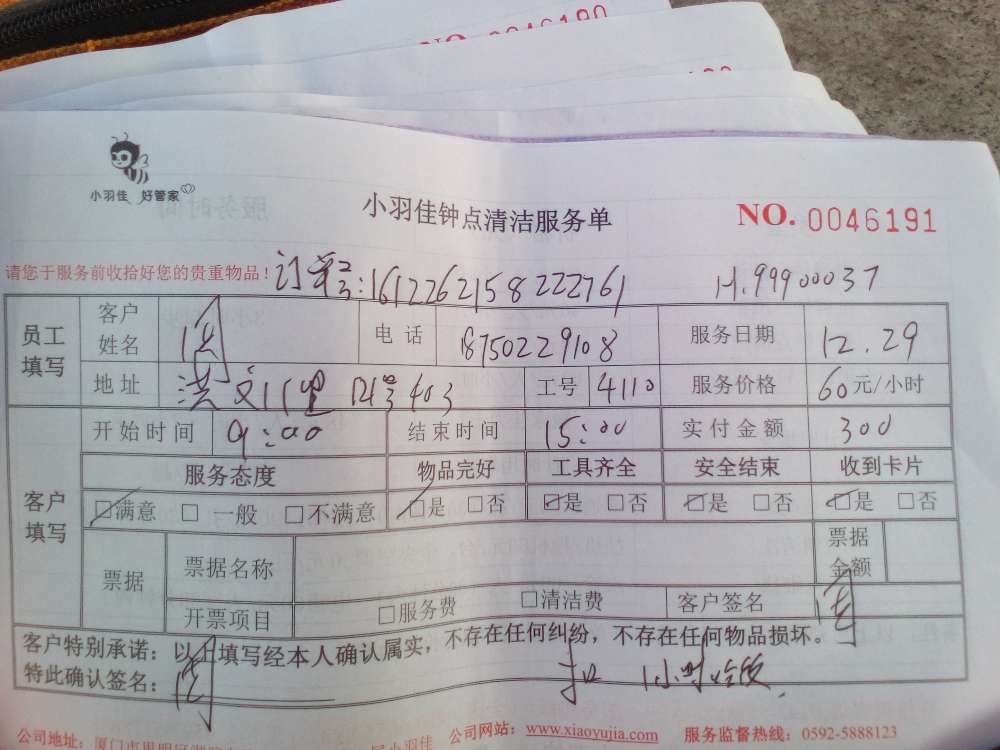 NO. 0046190
小羽佳 好管家
小羽佳钟点清洁服务单
NO. 0046191
请您于服务前收拾好您的贵重物品!
订单号:1612262158222761
H.99900037
员工填写 客户姓名 电话 18750229108 服务日期 12.29
地址 洪文 403 工号 4110 服务价格 60元/小时
客户填写 开始时间 9:00 结束时间 15:00 实付金额 300
服务态度 物品完好 工具齐全 安全结束 收到卡片
☑满意 □一般 □不满意 ☑是 □否 ☑是 □否 ☑是 □否 ☑是 □否
票据 票据名称 票据金额
开票项目 □服务费 □清洁费 客户签名
客户特别承诺:以上填写经本人确认属实,不存在任何纠纷,不存在任何物品损坏。
特此确认签名: 扣 1小时吃饭
公司地址: 小羽佳 公司网站:www.xiaoyujia.com 服务监督热线:0592-5888123